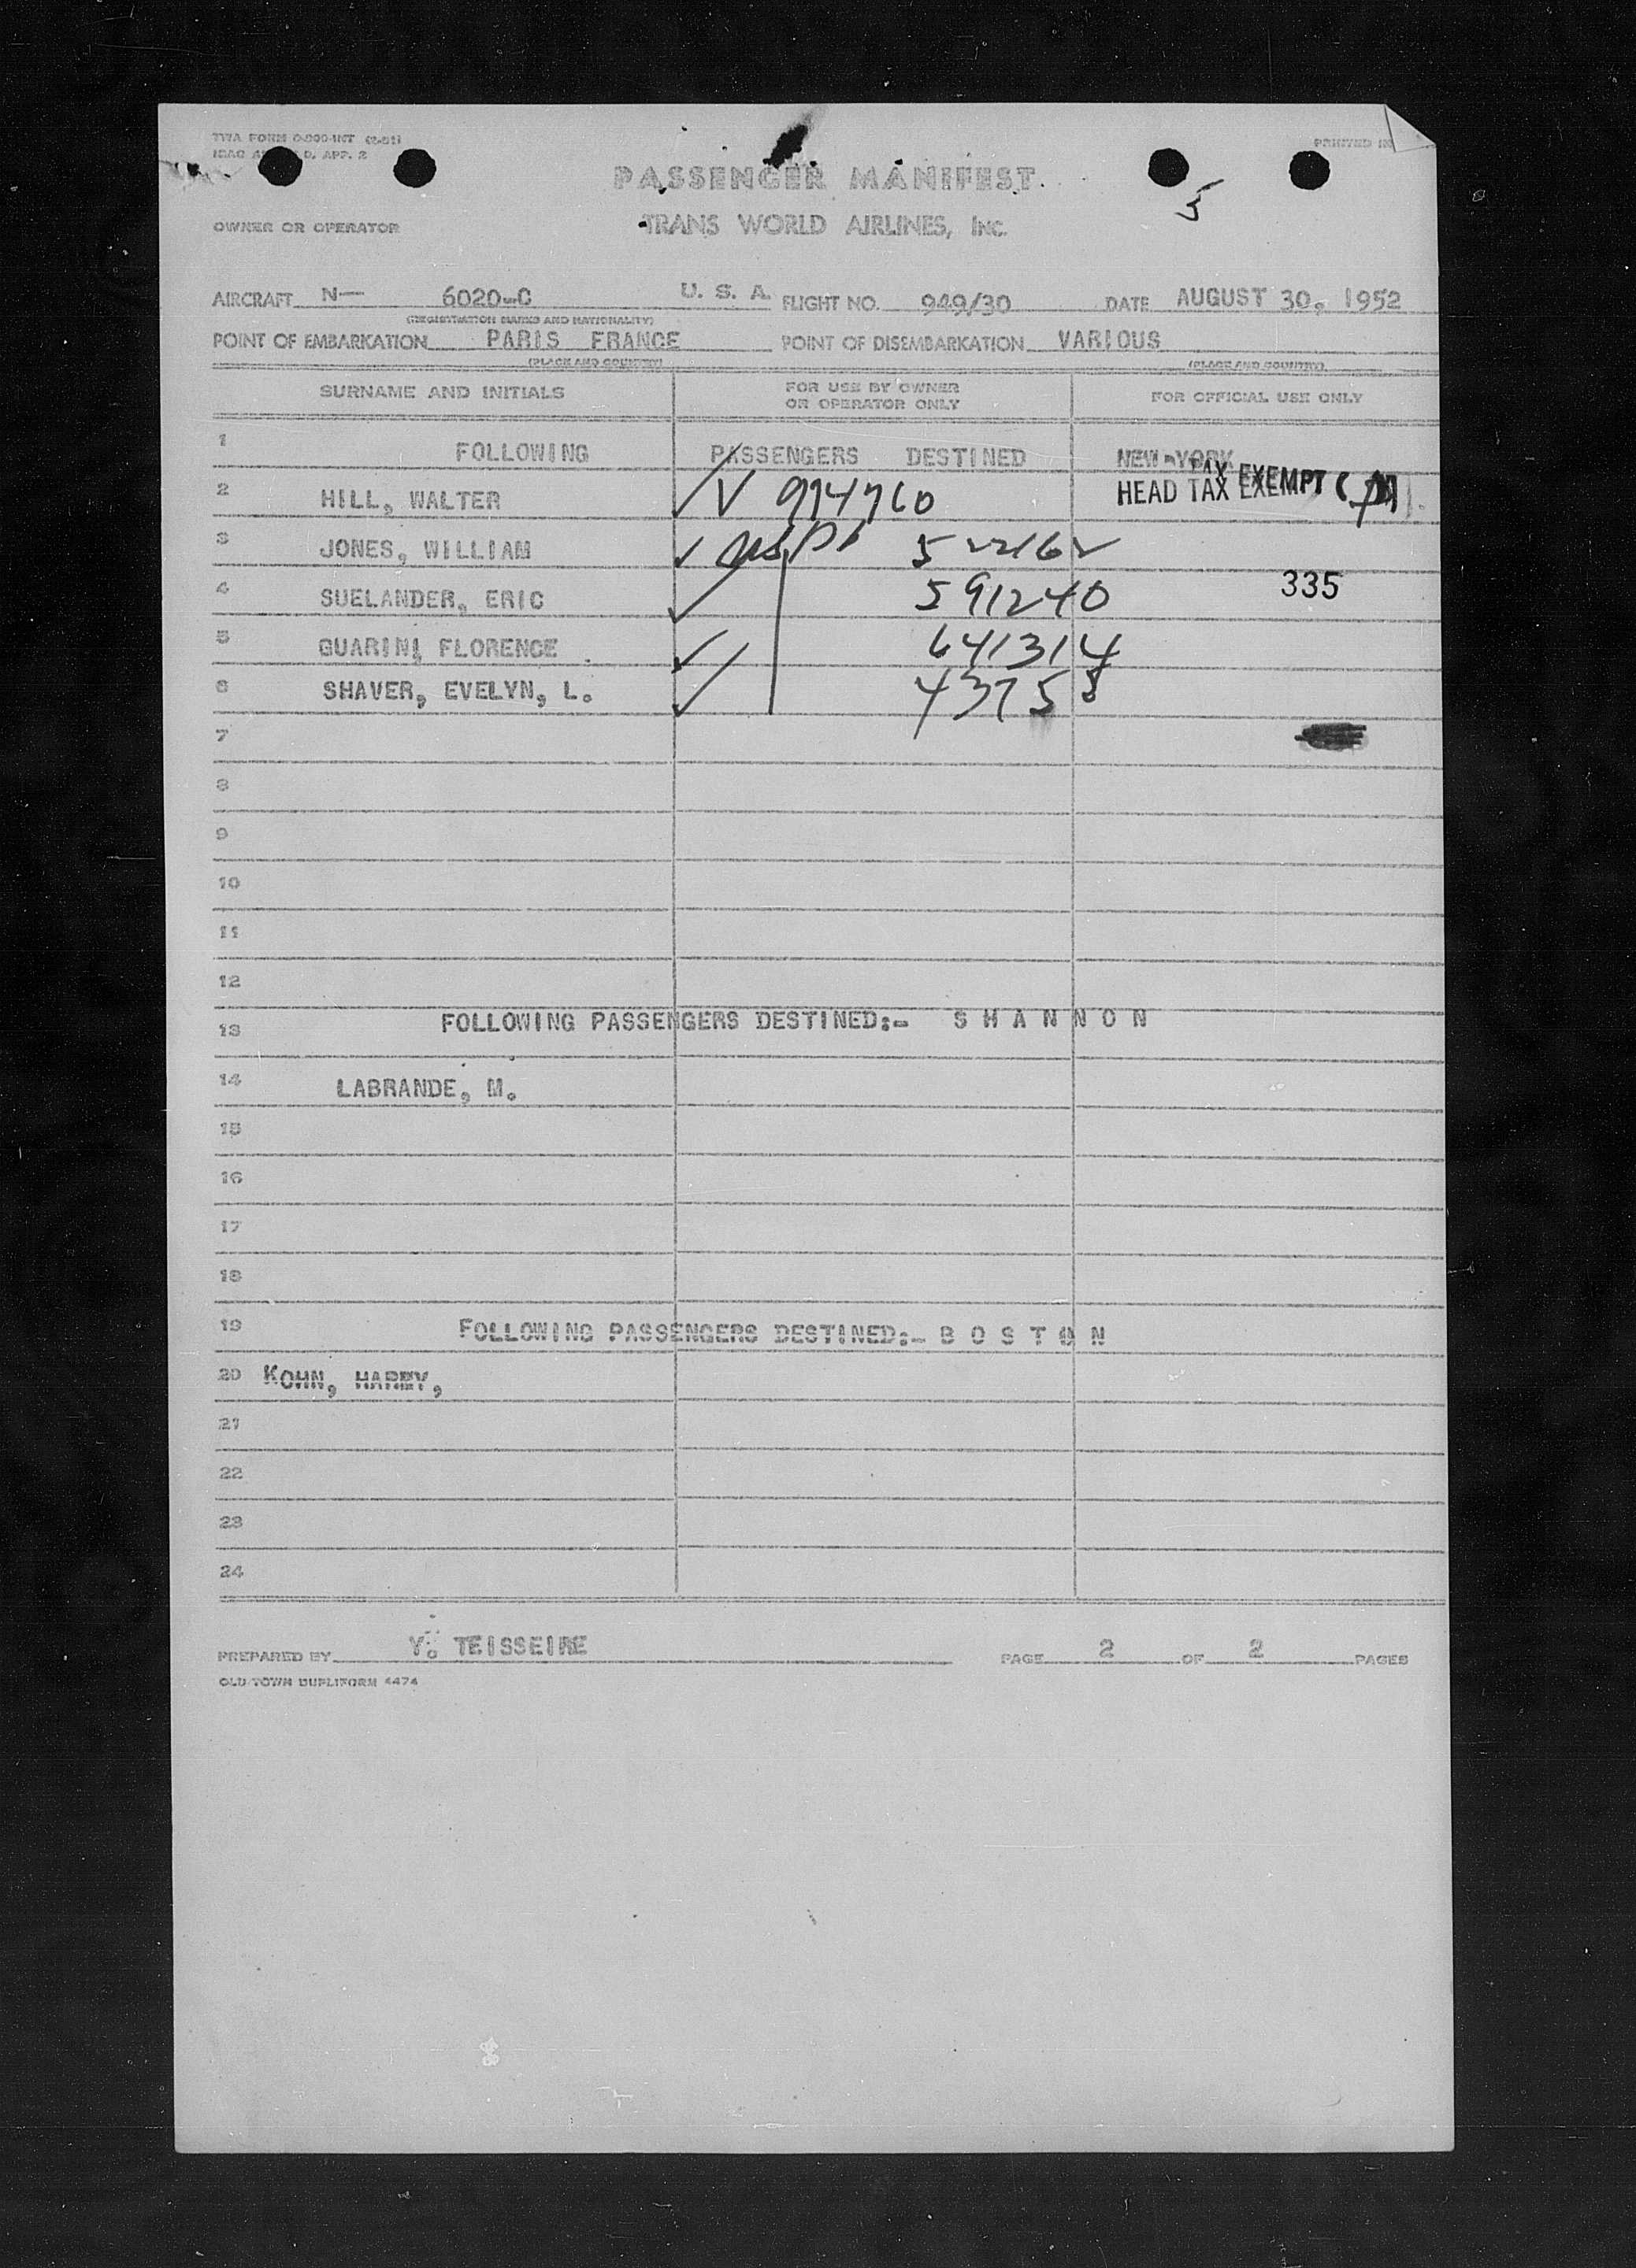 TWA FORM
APP. 2
PRINTED IN
PASSENGER MANIFEST
5
OWNER OR OPERATOR
TRANS WORLD AIRLINES, INC.
AIRCRAFT N— 6020-C U. S. A. FLIGHT NO. 949/30 DATE AUGUST 30, 1952
(REGISTRATION MARKS AND NATIONALITY)
POINT OF EMBARKATION PARIS FRANCE POINT OF DISEMBARKATION VARIOUS
(PLACE AND COUNTRY) (PLACE AND COUNTRY)
SURNAME AND INITIALS FOR USE BY OWNER OR OPERATOR ONLY FOR OFFICIAL USE ONLY
1 FOLLOWING PASSENGERS DESTINED NEW-YORK
TAX EXEMPT
2 HILL, WALTER ✓ V 974760 HEAD TAX EXEMPT
3 JONES, WILLIAM ✓ USPP 522162
4 SUELANDER, ERIC ✓ 591240 335
5 GUARINI, FLORENCE ✓ 641314
6 SHAVER, EVELYN, L. ✓ 43753
7
8
9
10
11
12
13 FOLLOWING PASSENGERS DESTINED:- S H A N N O N
14 LABRANDE, M.
15
16
17
18
19 FOLLOWING PASSENGERS DESTINED:- B O S T O N
20 KOHN, HARRY,
21
22
23
24
PREPARED BY Y. TEISSEIRE PAGE 2 OF 2 PAGES
OLD TOWN DUPLIFORM 4474